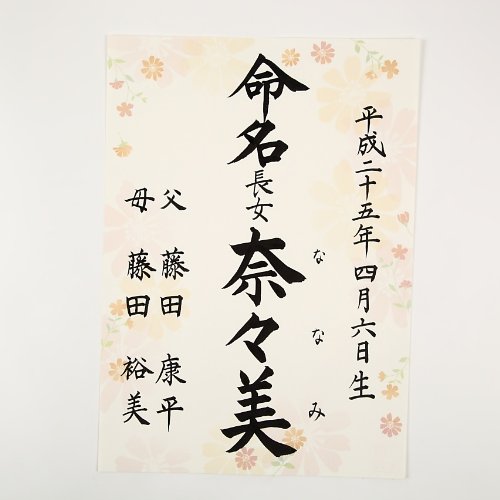 平成二十五年四月六日生
命名
長女
奈々美
ななみ
父 藤田 康平
母 藤田 裕美